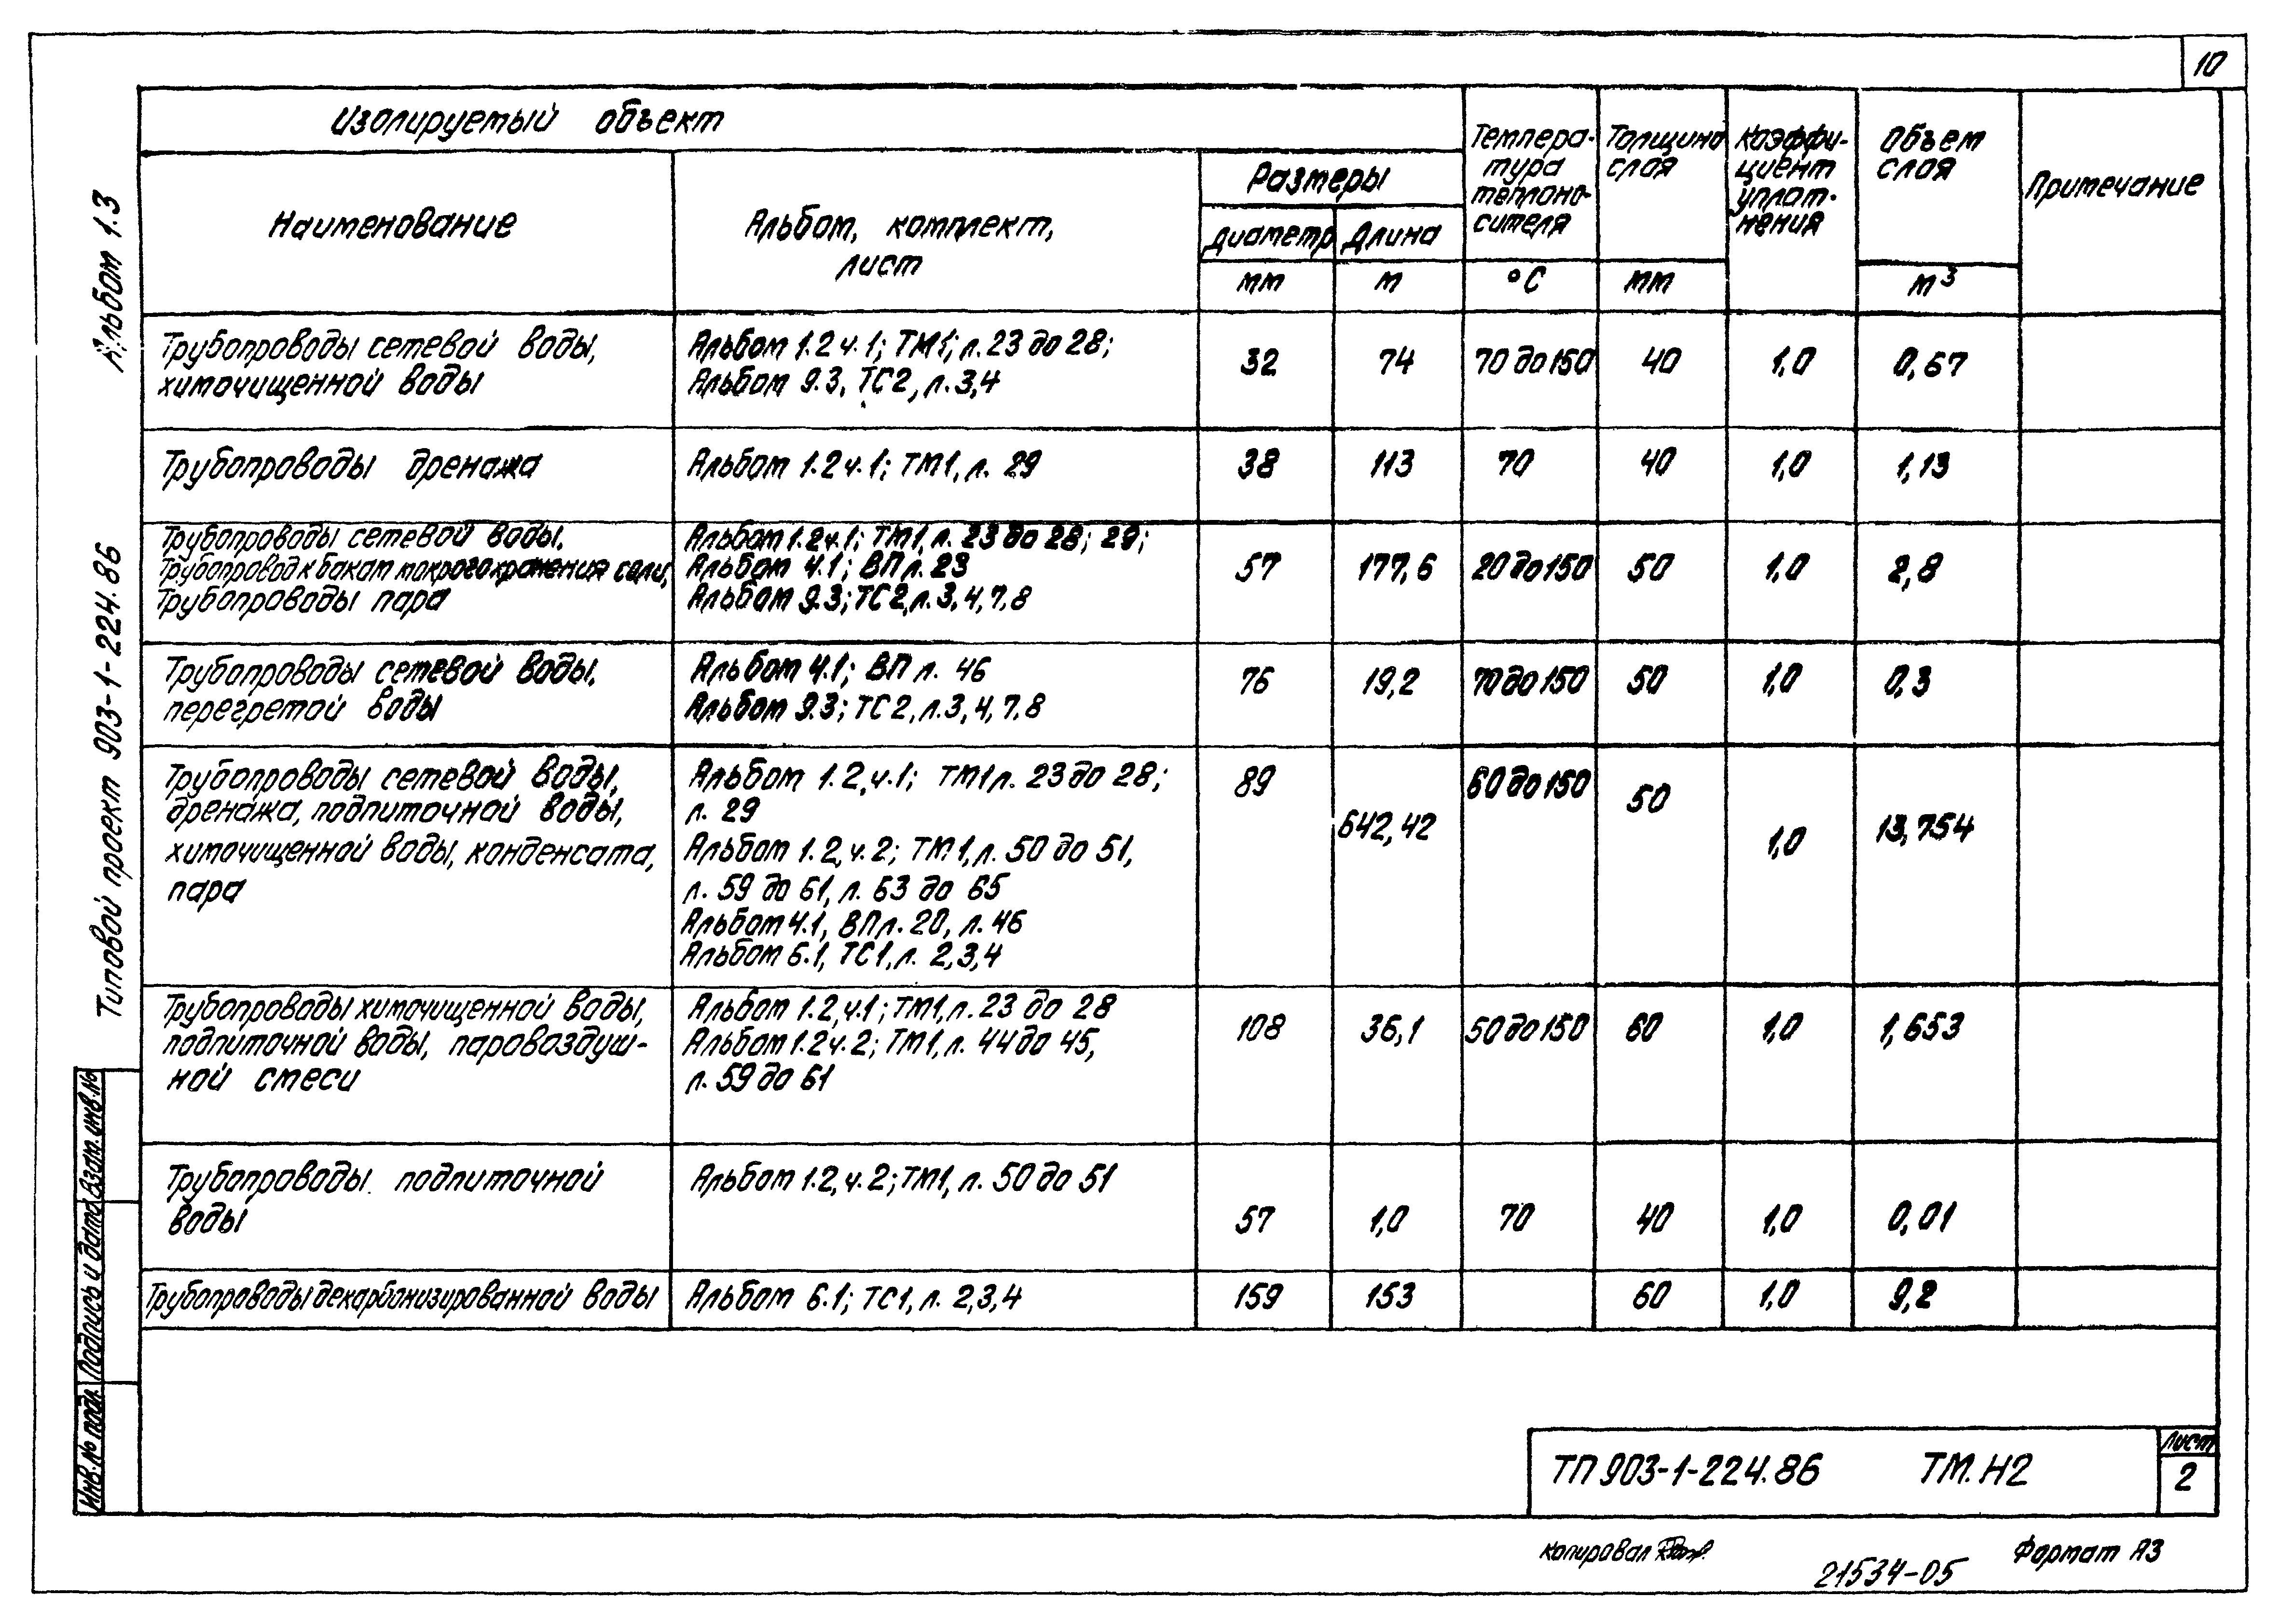 10
Изолируемый объект
Наименование
Альбом, комплект,
лист
Размеры
Диаметр
Длина
мм
м
Темпера-
тура
теплоно-
сителя
°С
Толщина
слоя
мм
Коэффи-
циент
уплот-
нения
Объем
слоя
м³
Примечание
Трубопроводы сетевой воды,
химочищенной воды
Альбом 1.2 ч.1; ТМ1; л.23 до 28;
Альбом 9.3, ТС2, л.3,4
32
74
70 до 150
40
1,0
0,67
Трубопроводы дренажа
Альбом 1.2 ч.1; ТМ1, л. 29
38
113
70
40
1,0
1,13
Трубопроводы сетевой воды,
Трубопровод к бакам мокрого хранения соли,
Трубопроводы пара
Альбом 1.2 ч.1; ТМ1, л. 23 до 28; 29;
Альбом 4.1; ВП л. 23
Альбом 9.3; ТС2, л.3,4,7,8
57
177,6
20 до 150
50
1,0
2,8
Трубопроводы сетевой воды,
перегретой воды
Альбом 4.1; ВП л. 46
Альбом 9.3; ТС2, л.3,4,7,8
76
19,2
70 до 150
50
1,0
0,3
Трубопроводы сетевой воды,
дренажа, подпиточной воды,
химочищенной воды, конденсата,
пара
Альбом 1.2, ч.1; ТМ1 л. 23 до 28;
л. 29
Альбом 1.2, ч.2; ТМ1, л. 50 до 51,
л. 59 до 61, л. 63 до 65
Альбом 4.1, ВП л. 20, л. 46
Альбом 6.1, ТС1, л. 2,3,4
89
642,42
60 до 150
50
1,0
13,754
Трубопроводы химочищенной воды,
подпиточной воды, паровоздуш-
ной смеси
Альбом 1.2, ч.1; ТМ1, л. 23 до 28
Альбом 1.2 ч.2; ТМ1, л. 44 до 45,
л. 59 до 61
108
36,1
50 до 150
60
1,0
1,653
Трубопроводы подпиточной
воды
Альбом 1.2, ч.2; ТМ1, л. 50 до 51
57
1,0
70
40
1,0
0,01
Трубопроводы декарбонизированной воды
Альбом 6.1; ТС1, л. 2,3,4
159
153
60
1,0
9,2
Альбом 1.3
Типовой проект 903-1-224.86
Взам. инв.№
Подпись и дата
Инв.№ подл.
ТП 903-1-224.86 ТМ.Н2
Лист
2
Копировал
21534-05
Формат А3